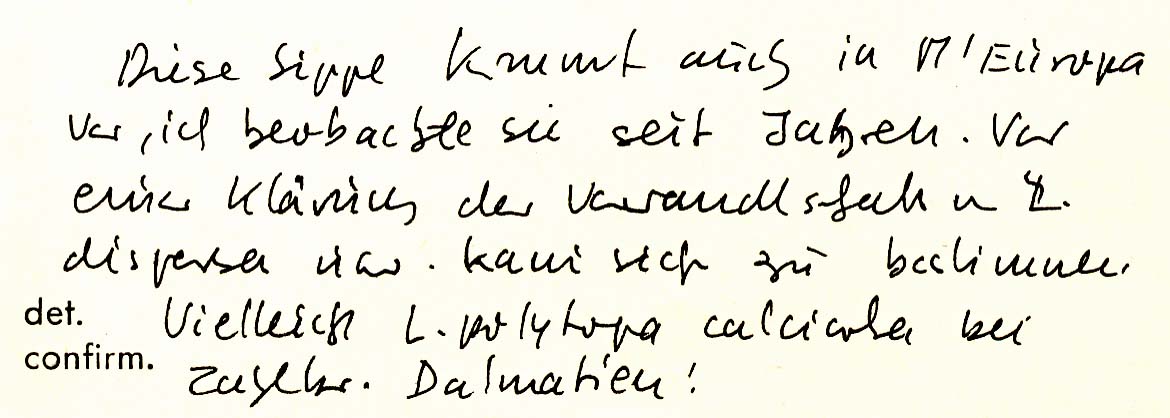 Diese Sippe kommt auch in M'Europa
vor, ich beobachte sie seit Jahren. Vor
einer Klärung der Verwandtschaft v. L.
dispersa kaum sich zu bestimmen.
det. Vielleicht L. polytropa calcicola bei
confirm. Zahlbr. Dalmatien!